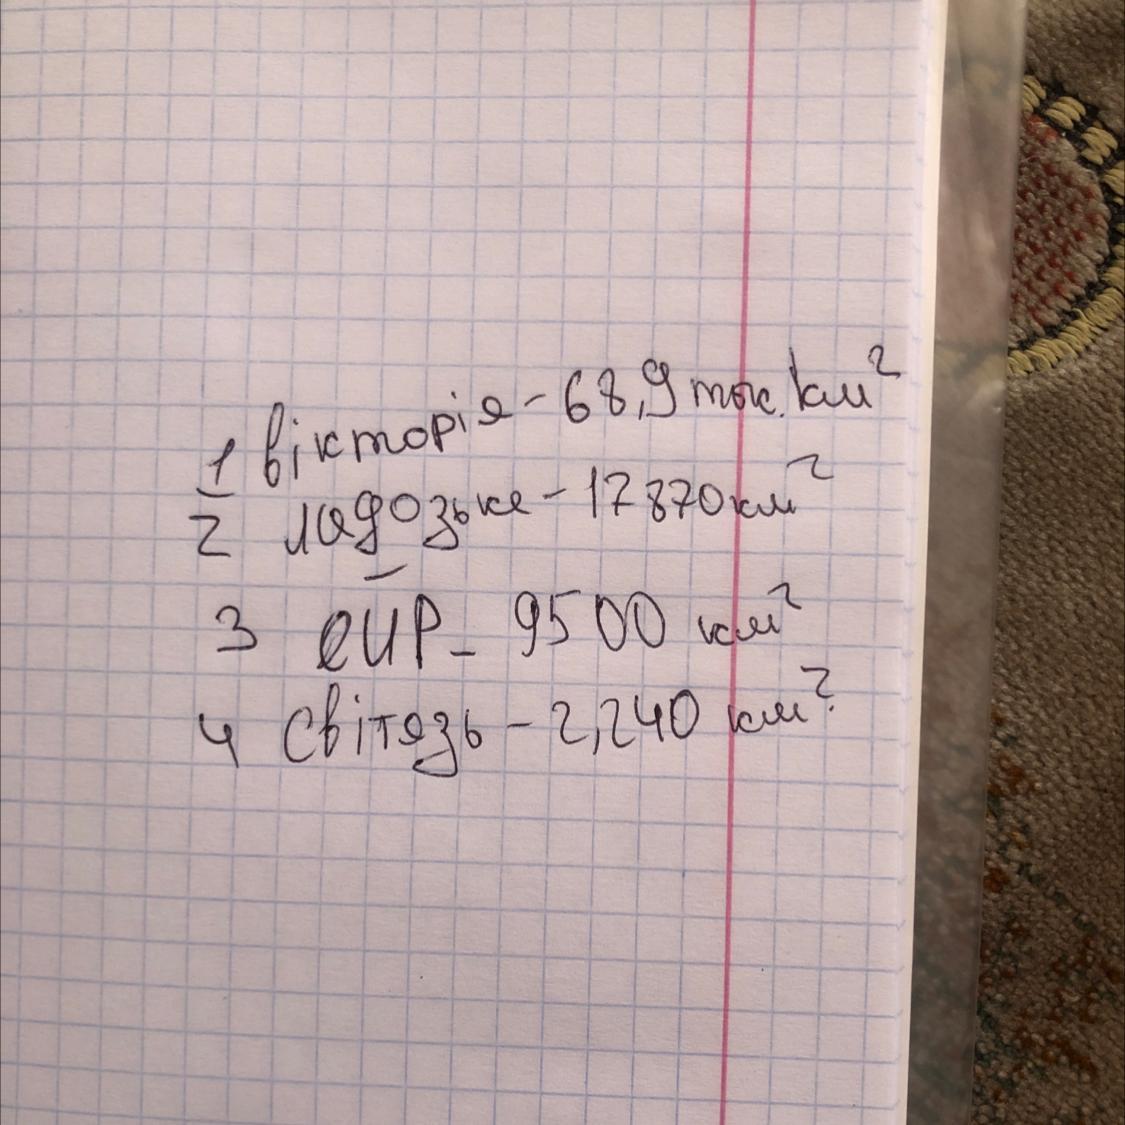 1 вікторія - 68,9 тис. км²
2 ладозьке - 17870 км²
3 еЙР - 9500 км²
4 Світязь - 2,240 км²